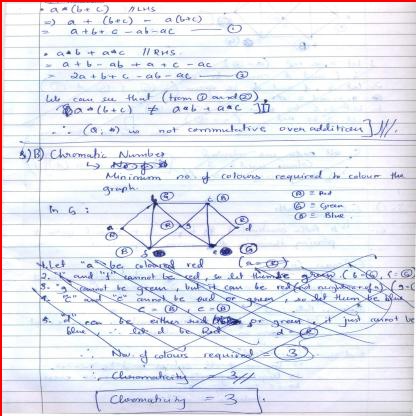 • a*(b+c) // LHS
=) a + (b+c) - a(b+c)
= a+b+c - ab - ac —— ①
• a*b + a*c // RHS
= a+b - ab + a + c - ac
= 2a+b+c - ab - ac —— ②
We can see that (from ① and ②)
[a*(b+c) ≠ a*b + a*c]
∴ (Q, *) is not commutative over addition]
B) Chromatic Number
↳
Minimum no. of colours required to colour the
graph.
Ⓡ = Red
Ⓖ = Green
Ⓑ = Blue
In G :
b Ⓖ c Ⓑ
a Ⓡ Ⓡ g Ⓡ d
Ⓑ f e Ⓖ
1. Let "a" be coloured red (a = Ⓡ)
2. "b" and "f" cannot be red, so let them be green (b = Ⓖ, f = Ⓖ)
3. "g" cannot be green, but it can be red
4. "c" and "e" cannot be red or green, so let them be blue
c = Ⓑ, e = Ⓑ
5. "d" can be either red or green, it just cannot be
blue, ∴ let d be Red d = Ⓡ
∴ No. of colours required = 3
∴ Chromaticity = 3
Chromaticity = 3